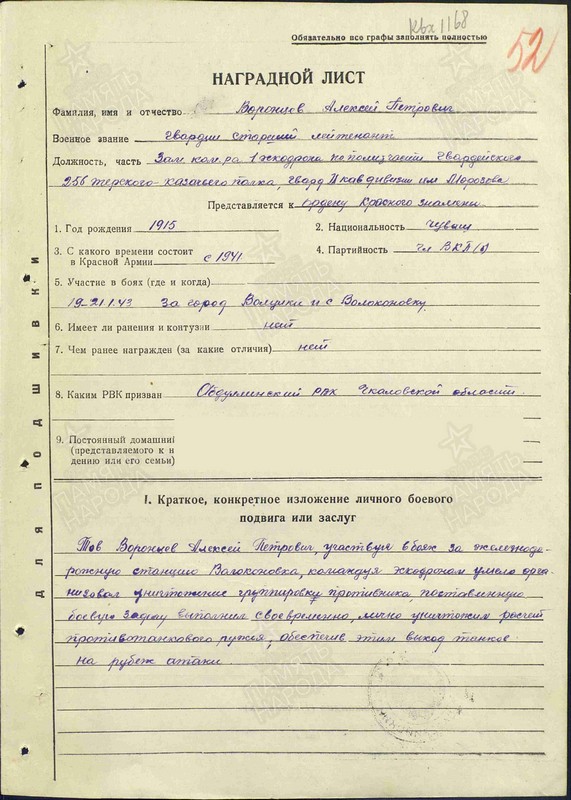 Квх1168
Обязательно все графы заполнить полностью
52
НАГРАДНОЙ ЛИСТ
Фамилия, имя и отчество Воронцов Алексей Петрович
Военное звание гвардии старший лейтенант
Должность, часть Зам ком.ра 1 эскадрона по полит части Гвардейского
256 терского-казачьего полка, Гвард II кав дивизии им Морозова
Представляется к ордену Красного знамени
1. Год рождения 1915 2. Национальность чуваш
3. С какого времени состоит
в Красной Армии с 1941 4. Партийность чл ВКП(б)
5. Участие в боях (где и когда)
19-21.1.43 За город Валуйки и с Волоконовку
6. Имеет ли ранения и контузии нет
7. Чем ранее награжден (за какие отличия) нет
8. Каким РВК призван Абдулинский РВК Чкаловской области
9. Постоянный домашний
(представляемого к н
дению или его семьи)
I. Краткое, конкретное изложение личного боевого
подвига или заслуг
Тов Воронцов Алексей Петрович, участвуя в боях за железнодо-
рожную станцию Волоконовка, командуя эскадроном умело орга-
низовал уничтожение группировки противника поставленную
боевую задачу выполнил своевременно, лично уничтожил расчет
противотанкового ружья, обеспечив этим выход танков
на рубеж атаки.
ДЛЯ ПОДШИВКИ
ПАМЯТЬ
НАРОДА